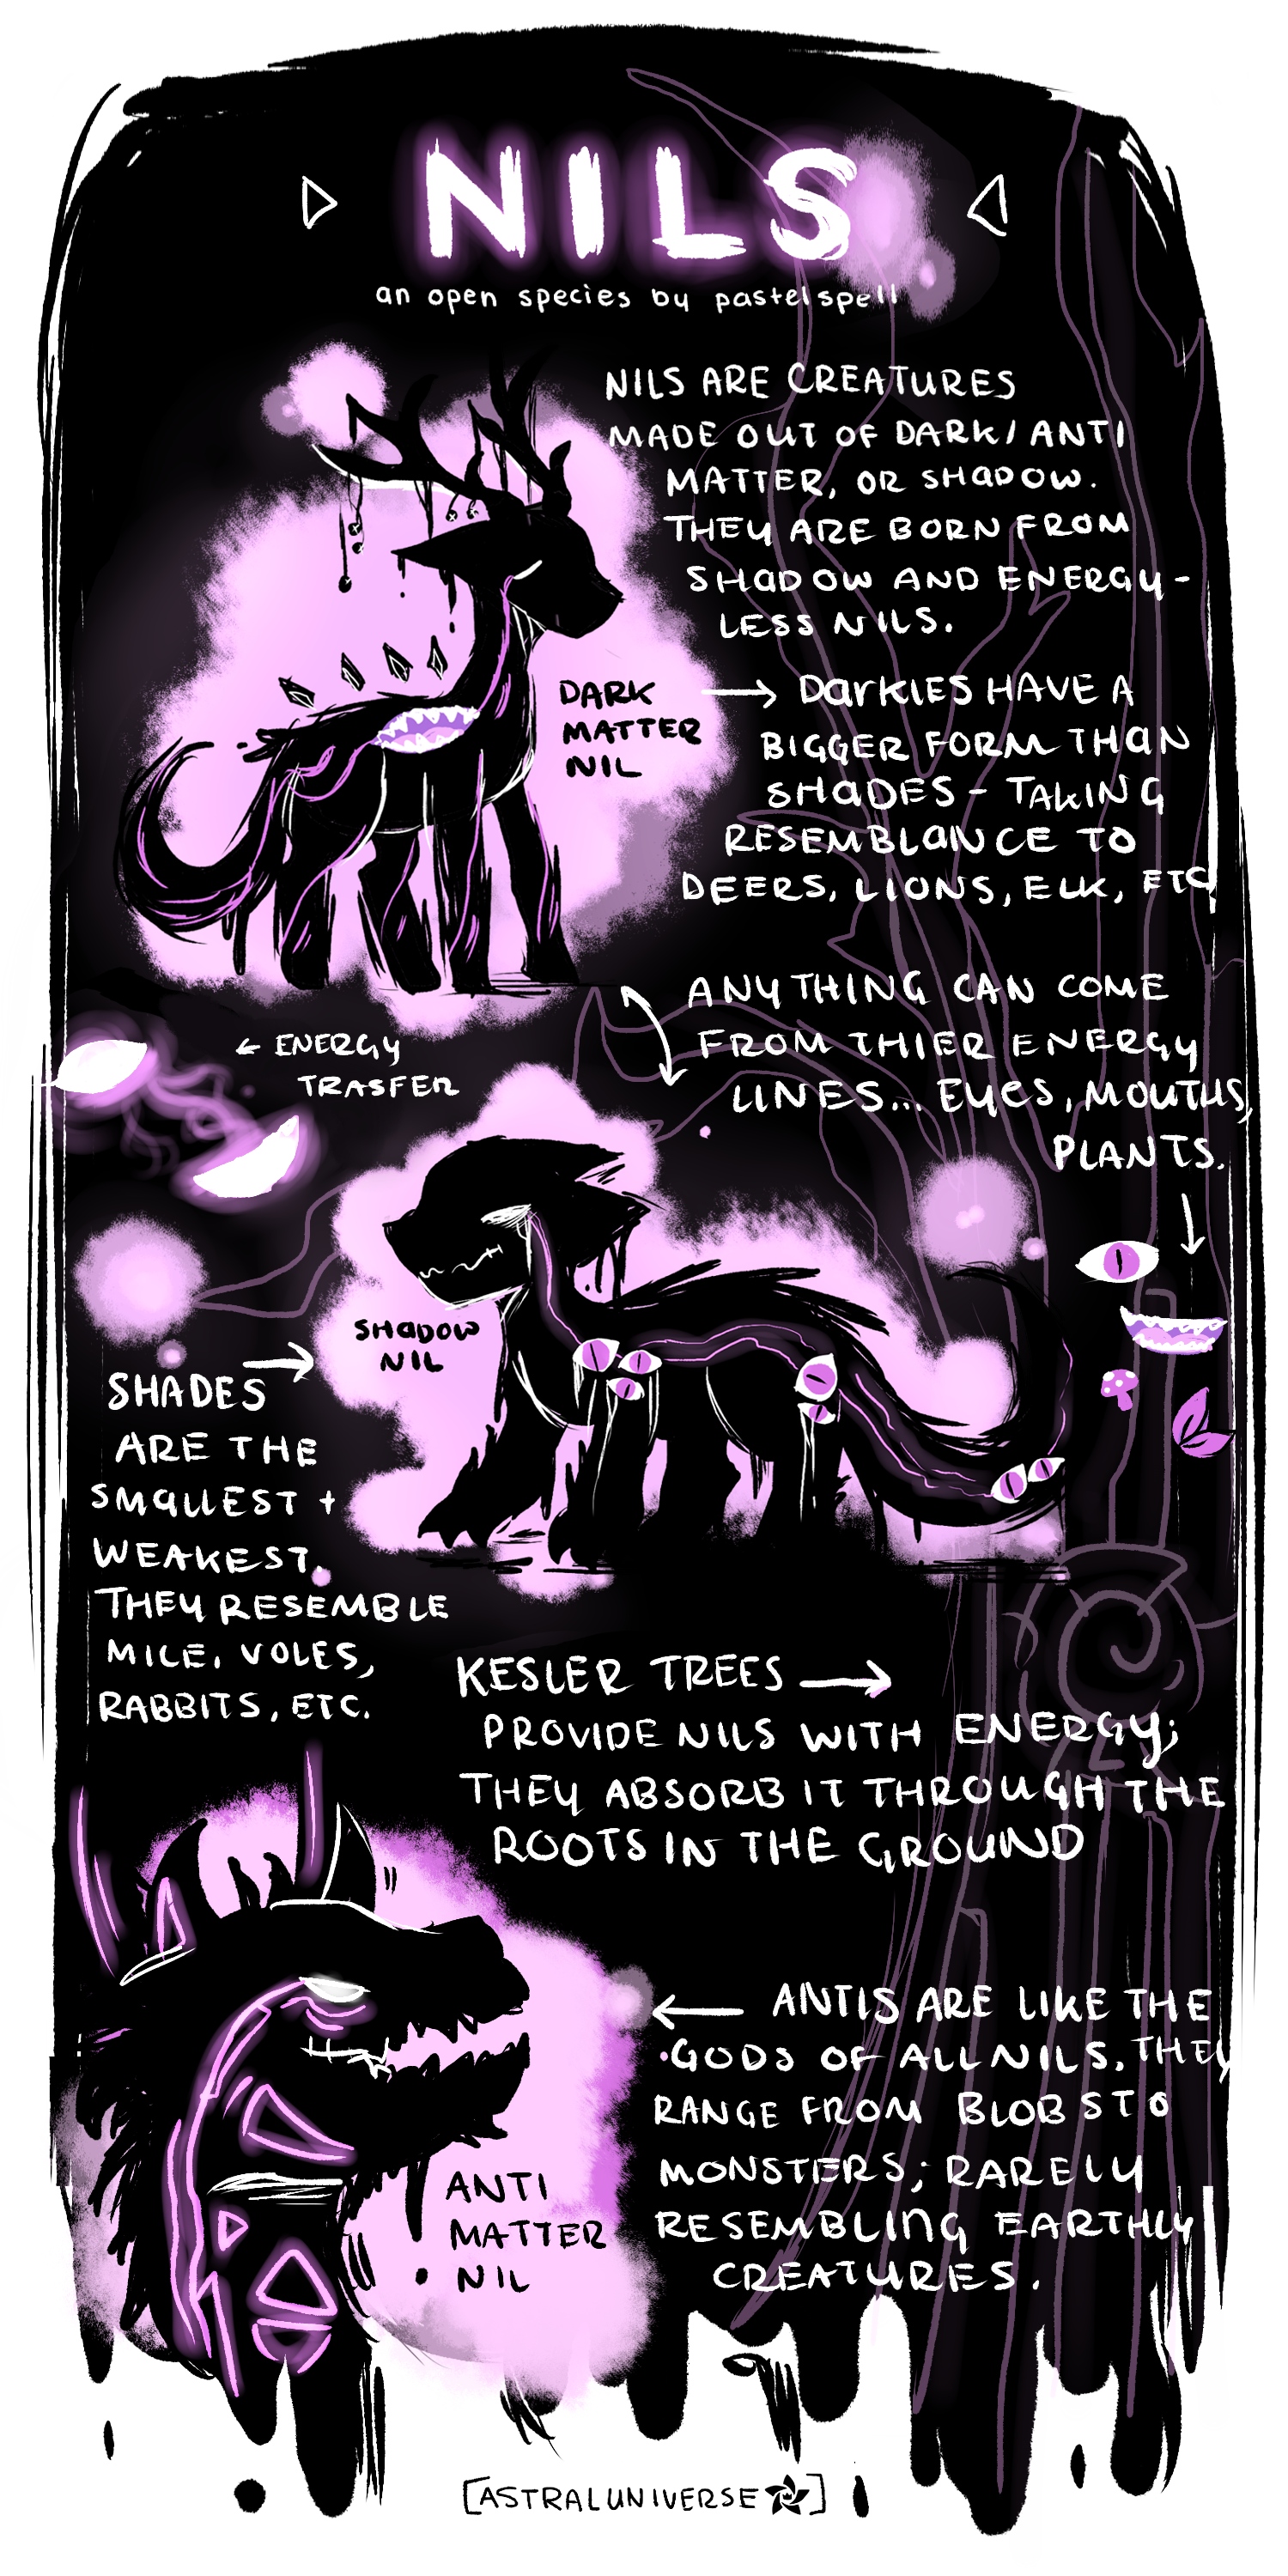 NILS
an open species by pastelspell
NILS ARE CREATURES
MADE OUT OF DARK/ANTI
MATTER, OR SHADOW.
THEY ARE BORN FROM
SHADOW AND ENERGY-
LESS NILS.
DARK
MATTER
NIL
DARKIES HAVE A
BIGGER FORM THAN
SHADES - TAKING
RESEMBLANCE TO
DEERS, LIONS, ELK, ETC
ANYTHING CAN COME
FROM THIER ENERGY
LINES... EYES, MOUTHS,
PLANTS.
← ENERGY
TRASFER
SHADOW
NIL
SHADES
ARE THE
SMALLEST +
WEAKEST.
THEY RESEMBLE
MICE, VOLES,
RABBITS, ETC.
KESLER TREES
PROVIDE NILS WITH ENERGY;
THEY ABSORB IT THROUGH THE
ROOTS IN THE GROUND
ANTIS ARE LIKE THE
GODS OF ALL NILS. THEY
RANGE FROM BLOBS TO
MONSTERS; RARELY
RESEMBLING EARTHLY
CREATURES.
ANTI
MATTER
NIL
[ASTRALUNIVERSE]